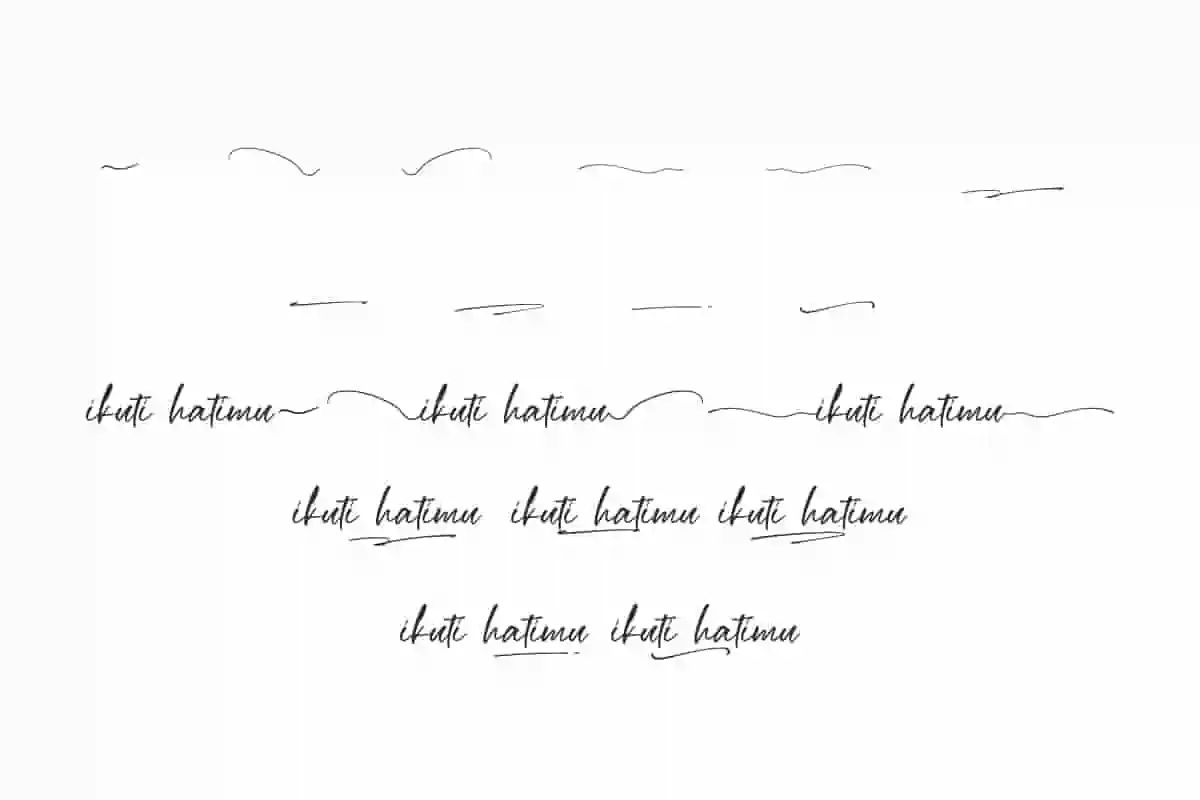 ikuti hatimu ikuti hatimu ikuti hatimu
ikuti hatimu ikuti hatimu ikuti hatimu
ikuti hatimu ikuti hatimu